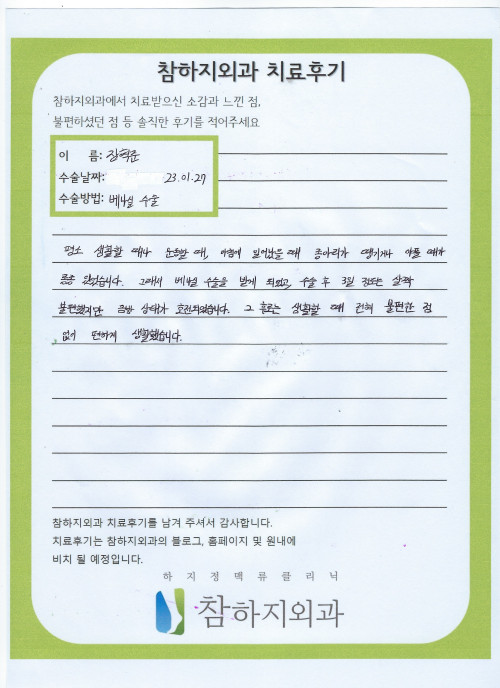 참하지외과 치료후기
참하지외과에서 치료받으신 소감과 느낀 점,
불편하셨던 점 등 솔직한 후기를 적어주세요
이 름: 장혁준
수술날짜: 23.01.27
수술방법: 베나실 수술
평소 생활할 때나 운동할 때, 아침에 일어났을 때 종아리가 땡기거나 아플 때가
종종 있었습니다. 그래서 베나실 수술을 받게 되었고, 수술 후 3일 정도는 살짝
불편했지만 금방 상태가 호전되었습니다. 그 후로는 생활할 때 전혀 불편한 점
없이 편하게 생활했습니다.
참하지외과 치료후기를 남겨 주셔서 감사합니다.
치료후기는 참하지외과의 블로그, 홈페이지 및 원내에
비치 될 예정입니다.
하지정맥류클리닉
참하지외과